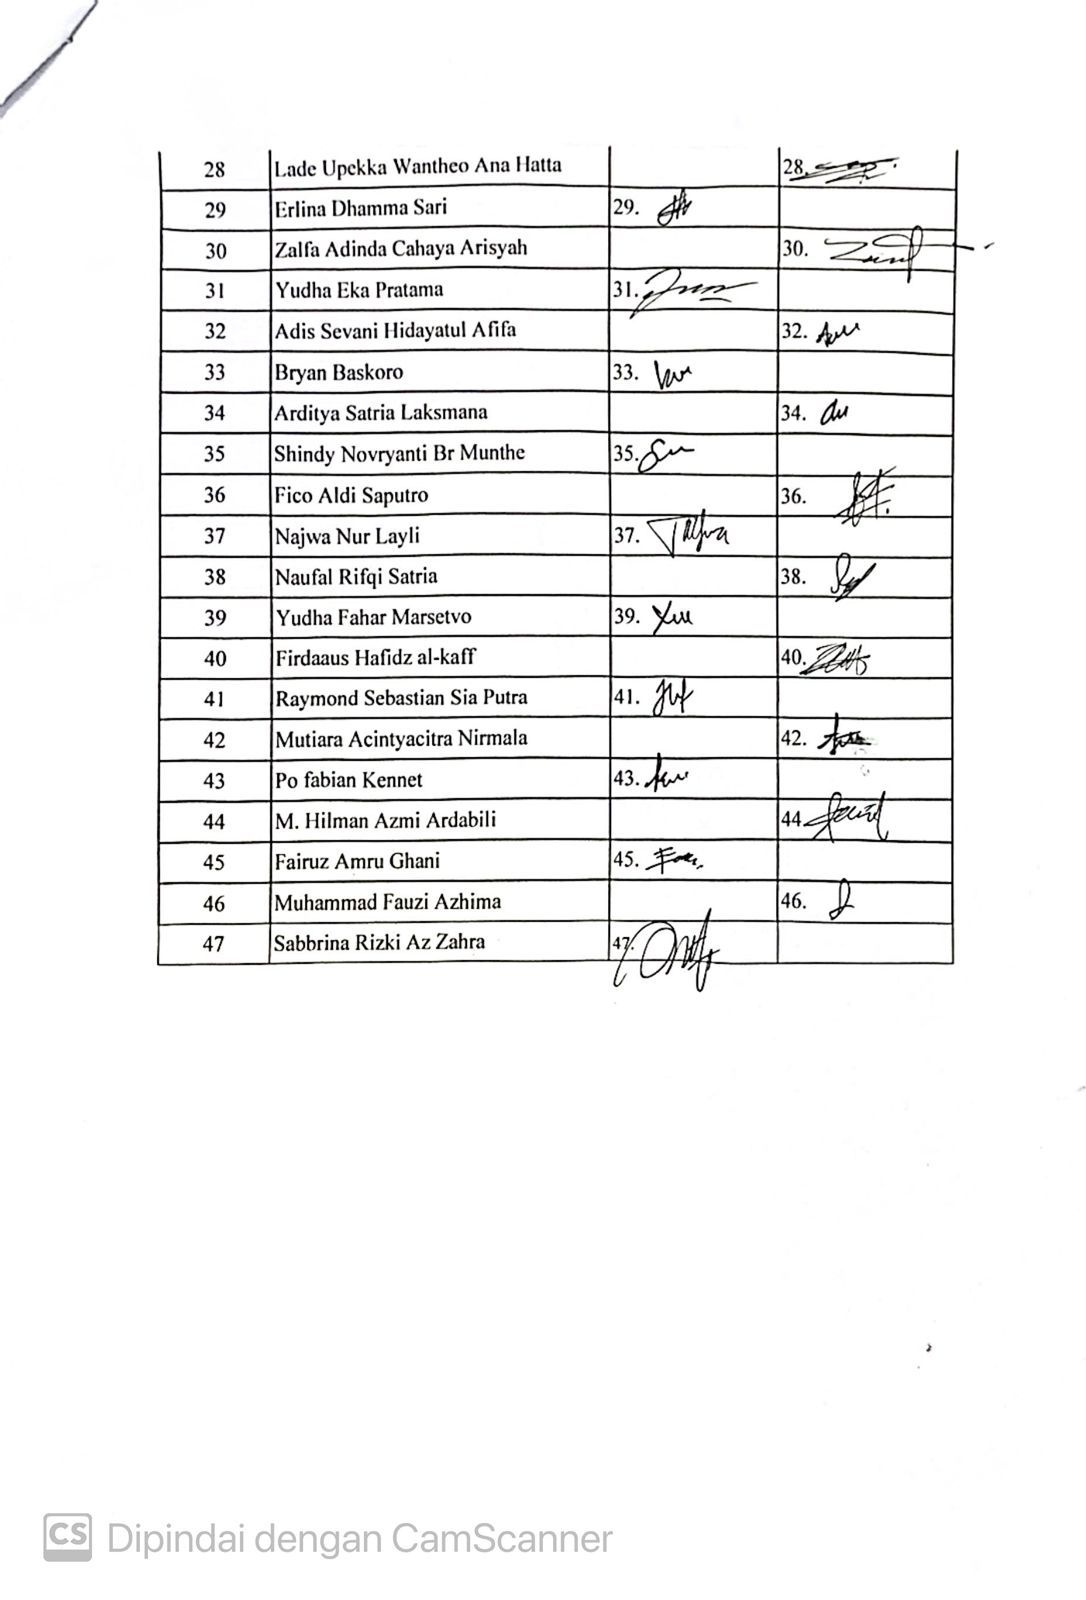 28 Lade Upekka Wantheo Ana Hatta 28.
29 Erlina Dhamma Sari 29.
30 Zalfa Adinda Cahaya Arisyah 30.
31 Yudha Eka Pratama 31.
32 Adis Sevani Hidayatul Afifa 32.
33 Bryan Baskoro 33.
34 Arditya Satria Laksmana 34.
35 Shindy Novryanti Br Munthe 35.
36 Fico Aldi Saputro 36.
37 Najwa Nur Layli 37.
38 Naufal Rifqi Satria 38.
39 Yudha Fahar Marsetvo 39.
40 Firdaaus Hafidz al-kaff 40.
41 Raymond Sebastian Sia Putra 41.
42 Mutiara Acintyacitra Nirmala 42.
43 Po fabian Kennet 43.
44 M. Hilman Azmi Ardabili 44
45 Fairuz Amru Ghani 45.
46 Muhammad Fauzi Azhima 46.
47 Sabbrina Rizki Az Zahra 47.
CS Dipindai dengan CamScanner